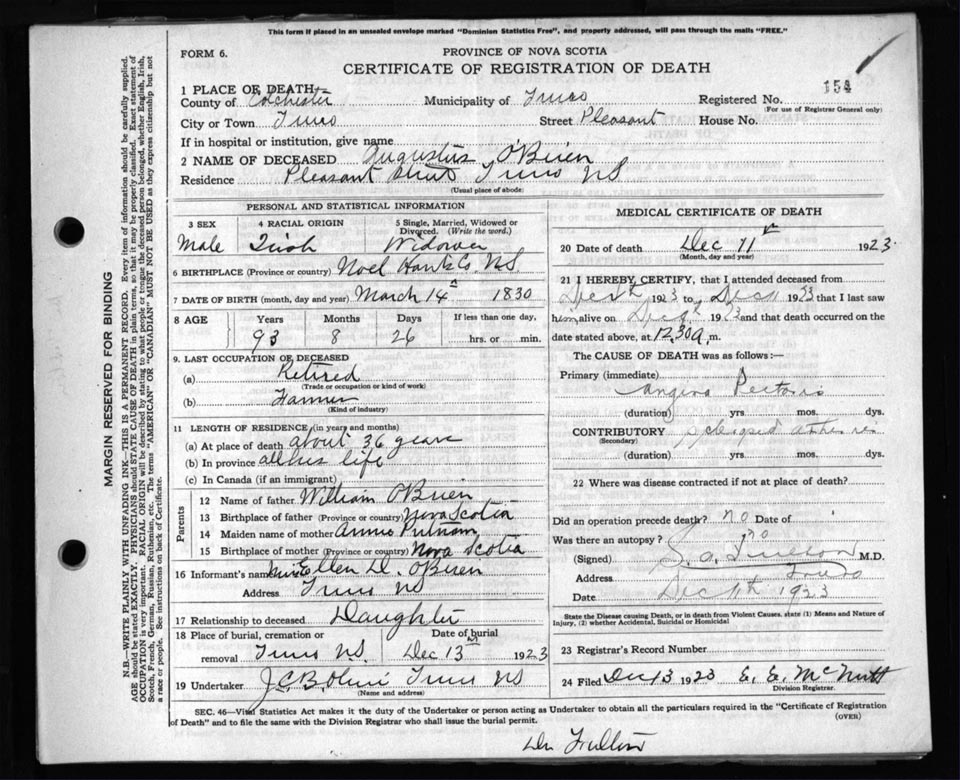 This form if placed in an unsealed envelope marked "Dominion Statistics Free", and properly addressed, will pass through the mails "FREE."
FORM 6.
PROVINCE OF NOVA SCOTIA
CERTIFICATE OF REGISTRATION OF DEATH
1 PLACE OF DEATH
County of Colchester Municipality of Truro Registered No. 154
(For use of Registrar General only)
City or Town Truro Street Pleasant House No.
If in hospital or institution, give name
2 NAME OF DECEASED Augustus O'Brien
Residence Pleasant Street Truro NS
(Usual place of abode)
PERSONAL AND STATISTICAL INFORMATION
3 SEX 4 RACIAL ORIGIN 5 Single, Married, Widowed or Divorced. (Write the word.)
Male Irish Widower
6 BIRTHPLACE (Province or country) Noel Hants Co. N.S.
7 DATE OF BIRTH (month, day and year) March 14th 1830
8 AGE Years Months Days If less than one day,
93 8 26 hrs. or min.
9. LAST OCCUPATION OF DECEASED
(a) Retired
(Trade or occupation or kind of work)
(b) Farmer
(Kind of industry)
11 LENGTH OF RESIDENCE (in years and months)
(a) At place of death about 36 years
(b) In province all his life
(c) In Canada (if an immigrant)
Parents
12 Name of father William O'Brien
13 Birthplace of father (Province or country) Nova Scotia
14 Maiden name of mother Annie Putnam
15 Birthplace of mother (Province or country) Nova Scotia
16 Informant's name Miss Ellen D. O'Brien
Address Truro NS
17 Relationship to deceased Daughter
18 Place of burial, cremation or removal Date of burial
Truro N.S. Dec 13th 1923
19 Undertaker J.C.B. Truro NS
(Name and address)
MEDICAL CERTIFICATE OF DEATH
20 Date of death Dec 11th 1923.
(Month, day and year)
21 I HEREBY CERTIFY, that I attended deceased from
1923 to 1923 that I last saw
him alive on 1923 and that death occurred on the
date stated above, at 12.30 a. m.
The CAUSE OF DEATH was as follows:—
Primary (immediate)
Angina Pectoris
(duration) yrs mos. dys.
CONTRIBUTORY
(Secondary)
(duration) yrs. mos. dys.
22 Where was disease contracted if not at place of death?
Did an operation precede death? no Date of
Was there an autopsy? no
(Signed) M.D.
Address Truro
Date Dec 1923
State the Disease causing Death, or in death from Violent Causes, state (1) Means and Nature of
Injury, (2) whether Accidental, Suicidal or Homicidal
23 Registrar's Record Number
24 Filed Dec 13 1923 E. E. McNutt
Division Registrar.
SEC. 46—Vital Statistics Act makes it the duty of the Undertaker or person acting as Undertaker to obtain all the particulars required in the "Certificate of Registration
of Death" and to file the same with the Division Registrar who shall issue the burial permit.
(OVER)
MARGIN RESERVED FOR BINDING
N.B.—WRITE PLAINLY WITH UNFADING INK—THIS IS A PERMANENT RECORD. Every item of information should be carefully supplied.
AGE should be stated EXACTLY. PHYSICIANS should STATE CAUSE OF DEATH in plain terms, so that it may be properly classified. Exact statement of
OCCUPATION is very important. RACIAL ORIGIN will be described by stating to what people or tongue the deceased person belonged, whether English, Irish,
Scotch, French, German, Russian, Ruthenian, etc. The terms "AMERICAN" or "CANADIAN" MUST NOT BE USED as they express citizenship but not
a race or people. See instructions on back of Certificate.